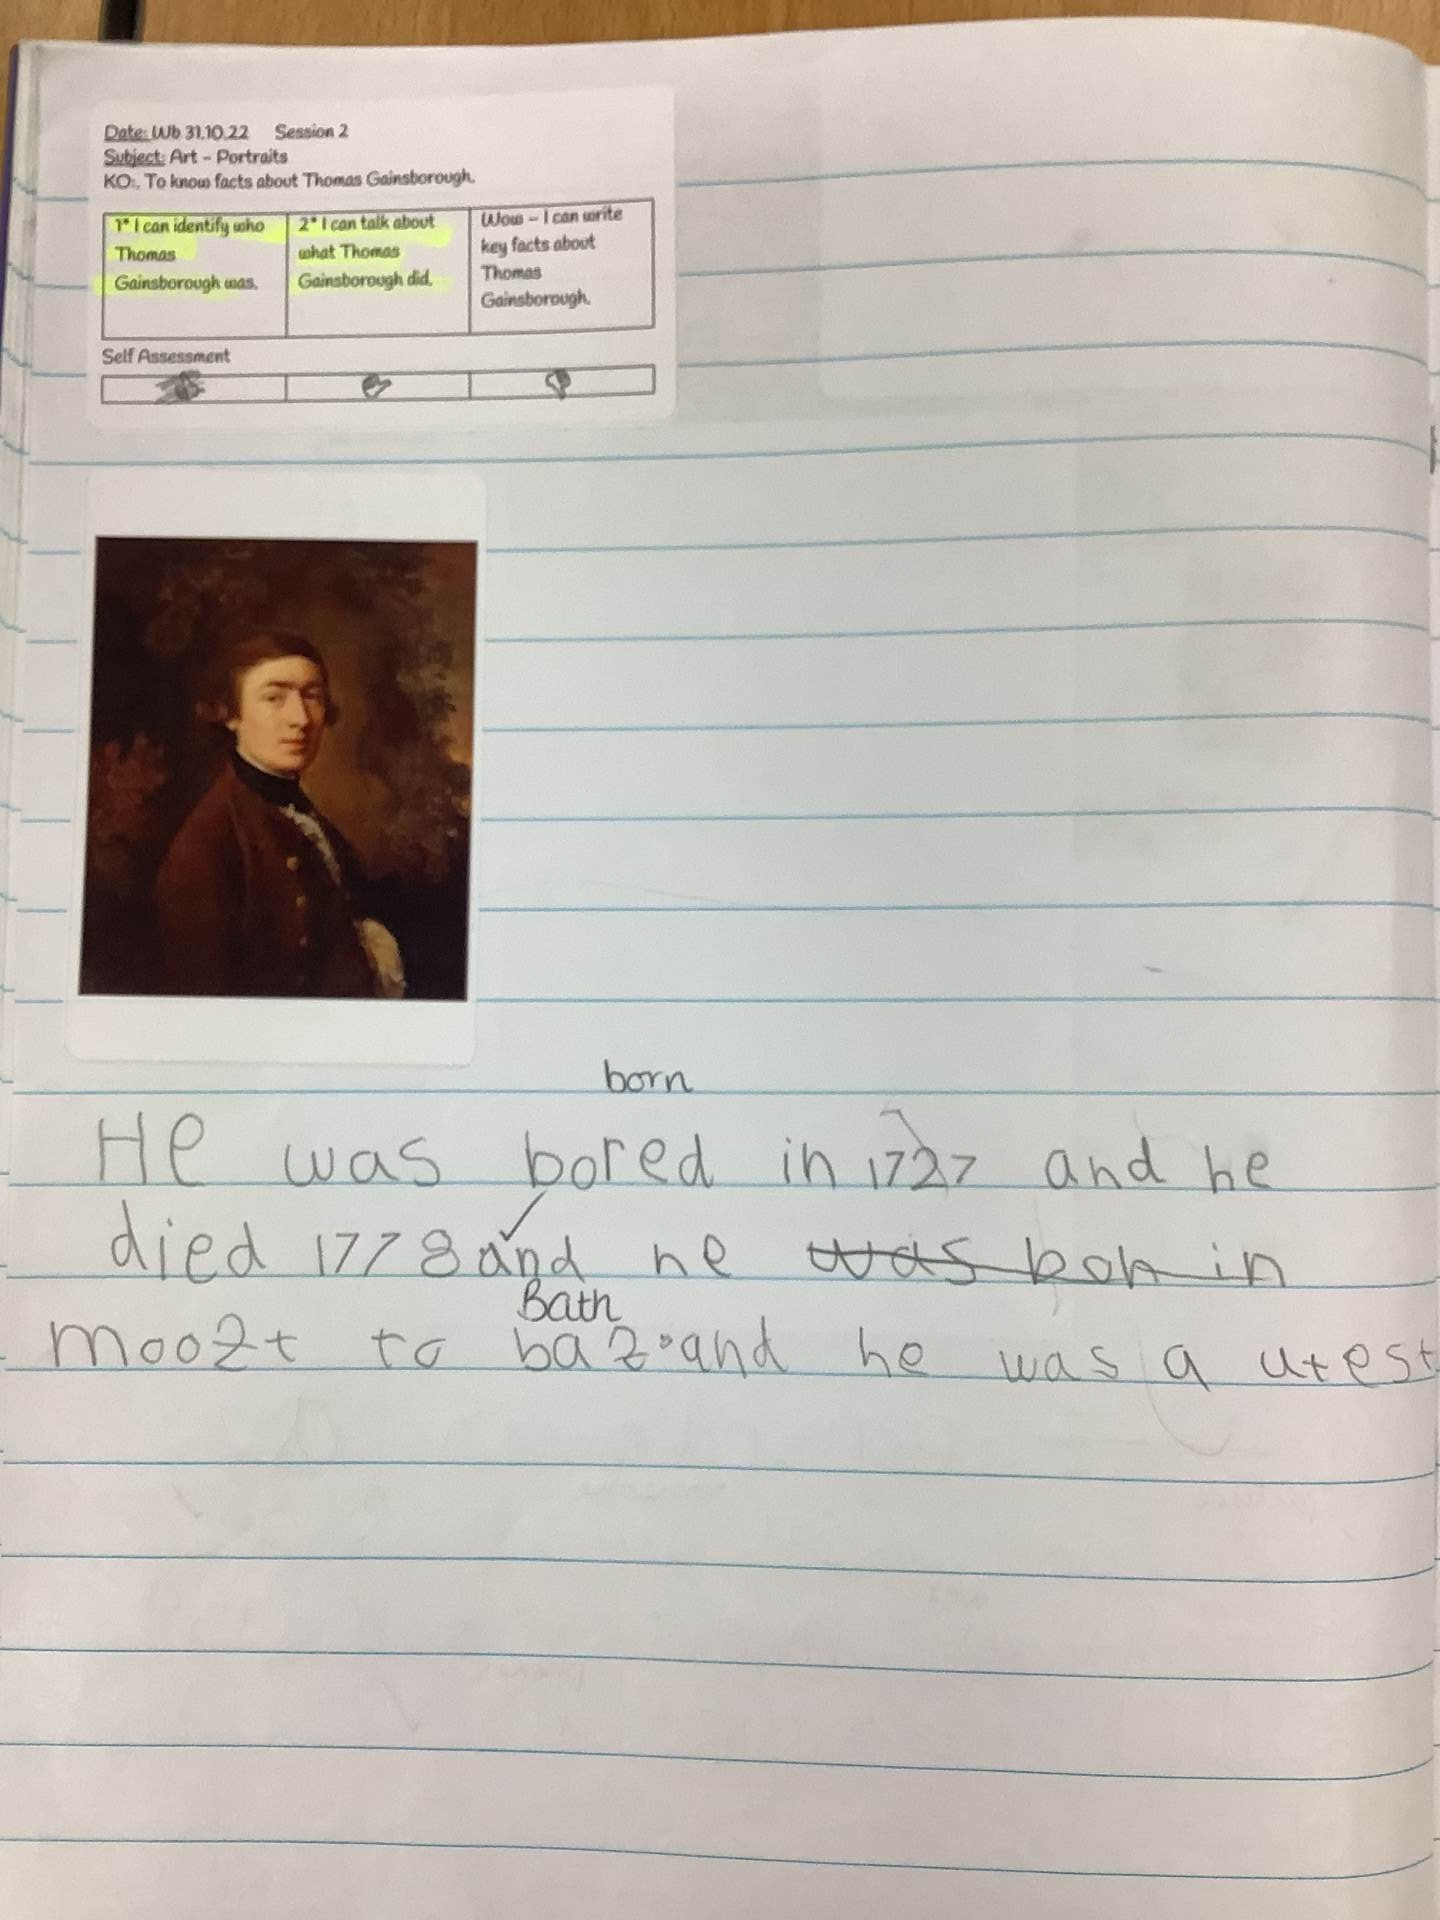 Date: Wb 31.10.22 Session 2
Subject: Art - Portraits
KO:. To know facts about Thomas Gainsborough.
1* I can identify who
Thomas
Gainsborough was.
2* I can talk about
what Thomas
Gainsborough did.
Wow – I can write
key facts about
Thomas
Gainsborough.
Self Assessment
born
He was bored in 1727 and he
died 1778 and he was bon in
Bath
moozt to baz and he was a utest